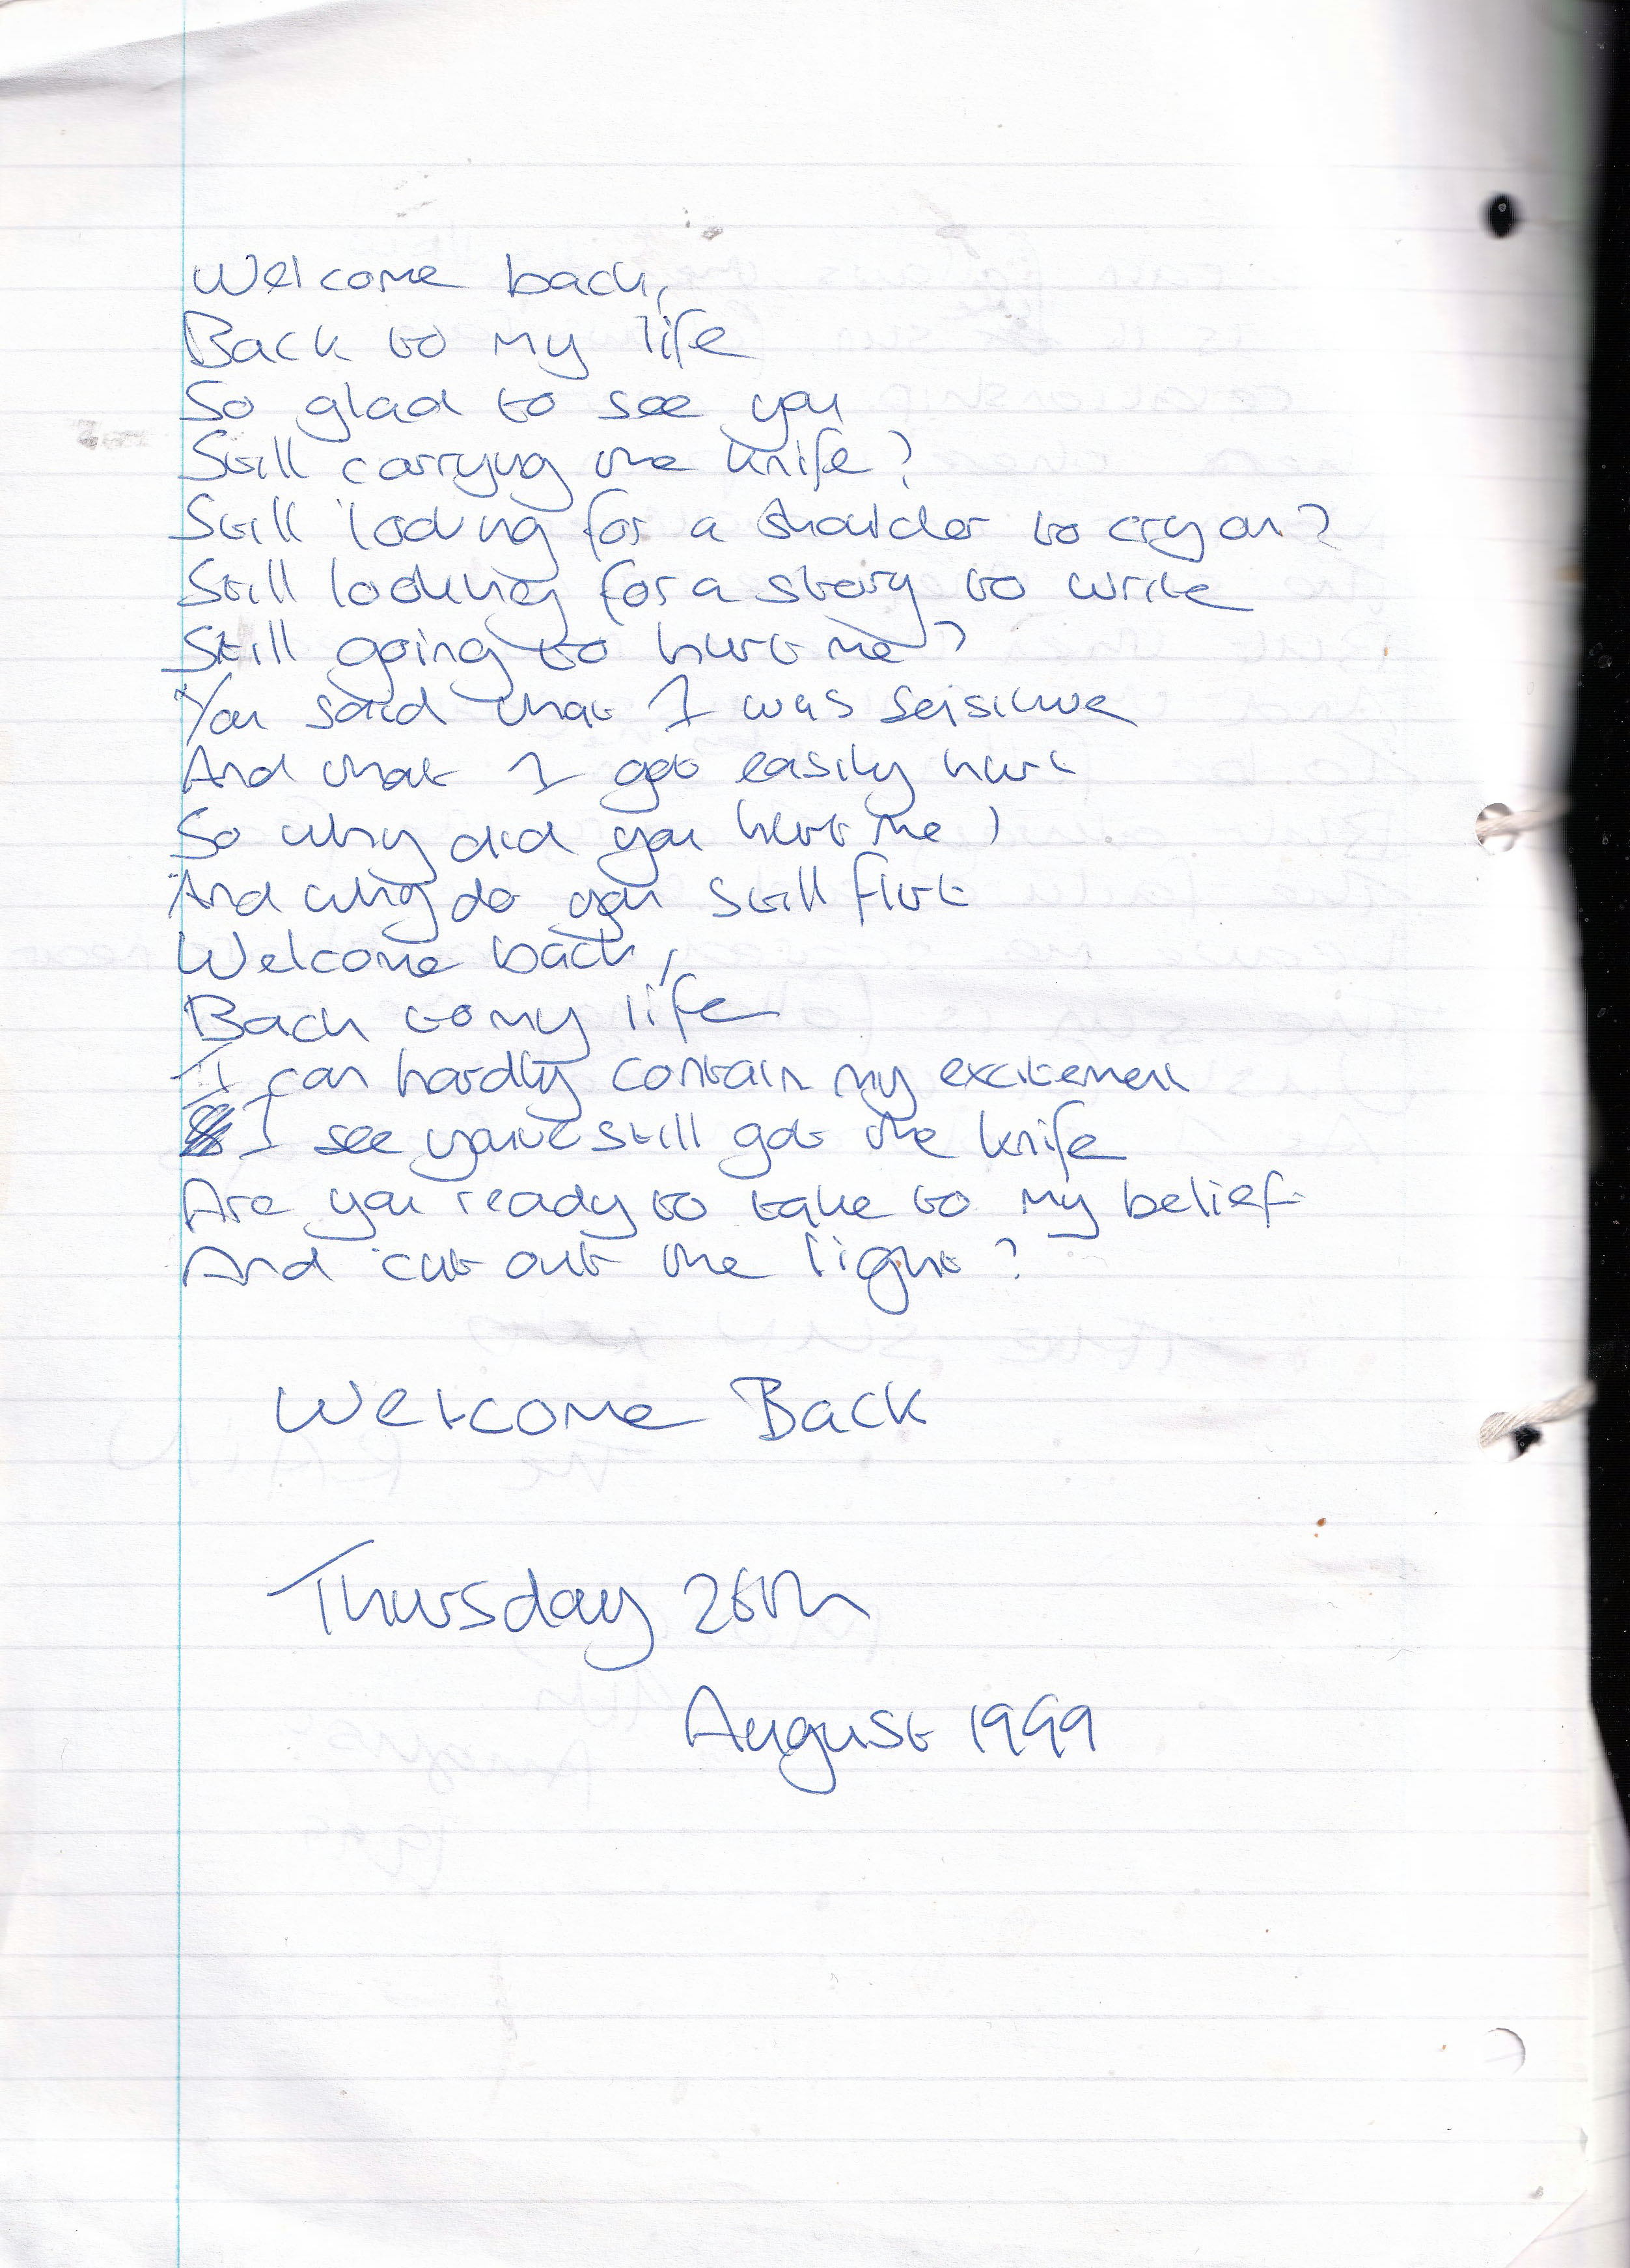 Welcome back,
Back to my life
So glad to see you
Still carrying the knife?
Still looking for a shoulder to cry on?
Still looking for a story to write
Still going to hurt me?
You said that I was seisitive
And that I got easily hurt
So why did you hurt me?
And why do you still flirt
Welcome back,
Back to my life
I can hardly contain my excitement
I see you've still got the knife
Are you ready to take to my belief
And cut out the light?
Welcome Back
Thursday 26th
August 1999